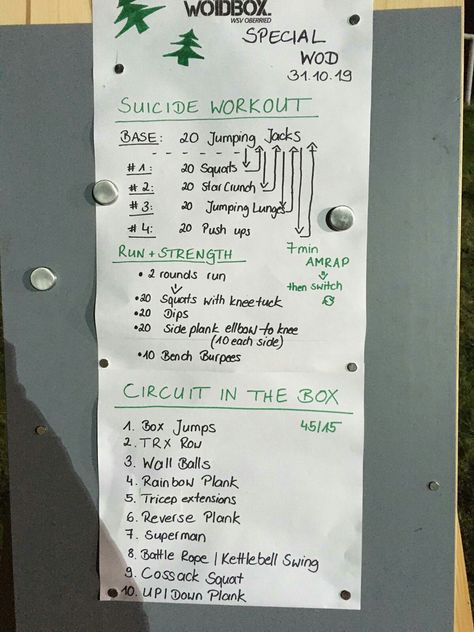 WOIDBOX.
WSV OBERRIED
SPECIAL
WOD
31.10.19
SUICIDE WORKOUT
BASE: 20 Jumping Jacks
#1: 20 Squats
#2: 20 Star Crunch
#3: 20 Jumping Lunges
#4: 20 Push ups
RUN + STRENGTH
7min
AMRAP
then switch
• 2 rounds run
• 20 Squats with kneetuck
• 20 Dips
• 20 Side plank ellbow-to knee
(10 each side)
• 10 Bench Burpees
CIRCUIT IN THE BOX
45/15
1. Box Jumps
2. TRX Row
3. Wall Balls
4. Rainbow Plank
5. Tricep extensions
6. Reverse Plank
7. Superman
8. Battle Rope | Kettlebell Swing
9. Cossack Squat
10. UP | Down Plank